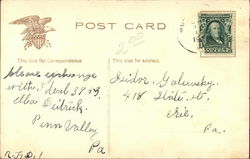 POST CARD
2.00
This side for Correspondence.
This side for Address.
Please exchange
with
Elba Deitrick.
Penn Valley
Pa
R.F.D. 1
Isidor Galinsky.
418 State st.
Erie.
Pa.